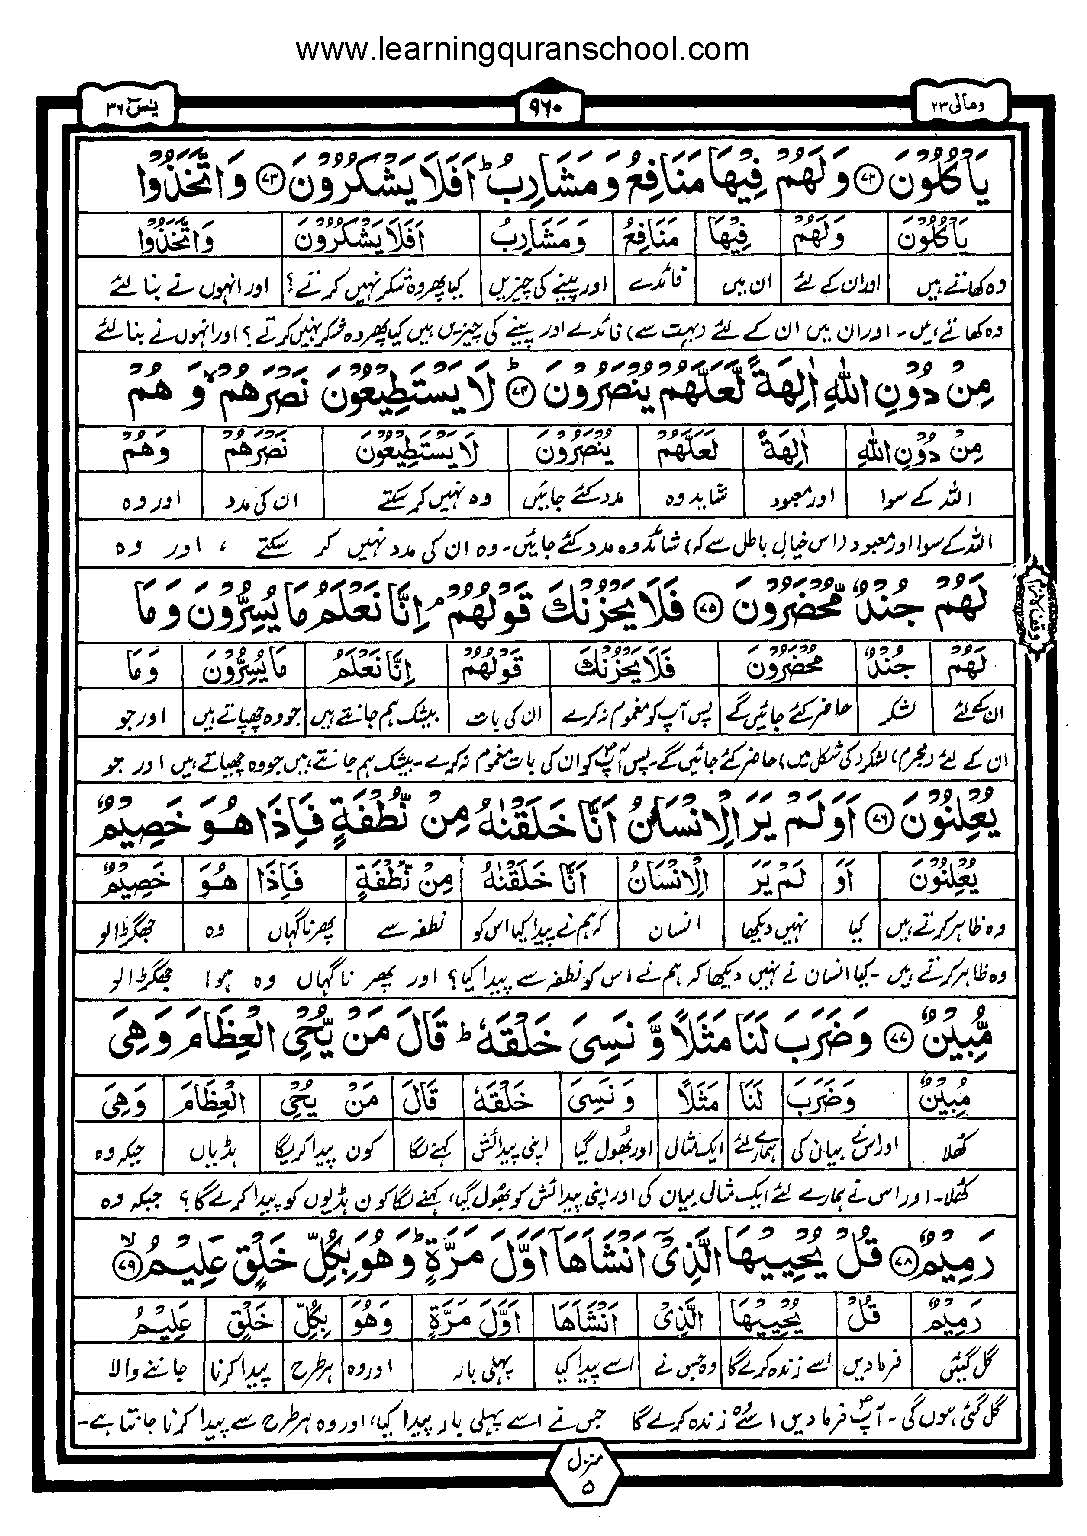 www.learningquranschool.com
ومالی ۲۳
۹۶۰
یٰسٓ ۳۶
یَاۡکُلُوۡنَ ﴿۷۲﴾ وَلَهُمۡ فِیۡهَا مَنَافِعُ وَمَشَارِبُ ؕ اَفَلَا یَشۡکُرُوۡنَ ﴿۷۳﴾ وَاتَّخَذُوۡا
یَاۡکُلُوۡنَ وَلَهُمۡ فِیۡهَا مَنَافِعُ وَمَشَارِبُ اَفَلَا یَشۡکُرُوۡنَ وَاتَّخَذُوۡا
وہ کھاتے ہیں اور ان کے لئے ان میں فائدے اور پینے کی چیزیں کیا پھر وہ شکر نہیں کرتے؟ اور انہوں نے بنا لئے
وہ کھاتے ہیں۔ اور ان میں ان کے لئے (بہت سے) فائدے اور پینے کی چیزیں ہیں کیا پھر وہ شکر نہیں کرتے؟ اور انہوں نے بنا لئے
مِنۡ دُوۡنِ اللّٰهِ اٰلِهَةً لَّعَلَّهُمۡ یُنۡصَرُوۡنَ ﴿۷۴﴾ؕ لَا یَسۡتَطِیۡعُوۡنَ نَصۡرَهُمۡ ۙ وَهُمۡ
مِنۡ دُوۡنِ اللّٰهِ اٰلِهَةً لَعَلَّهُمۡ یُنۡصَرُوۡنَ لَا یَسۡتَطِیۡعُوۡنَ نَصۡرَهُمۡ وَهُمۡ
اللہ کے سوا اور معبود شاید وہ مدد کئے جائیں وہ نہیں کر سکتے ان کی مدد اور وہ
اللہ کے سوا اور معبود (اس خیالِ باطل سے کہ) شائد وہ مدد کئے جائیں۔ وہ ان کی مدد نہیں کر سکتے ، اور وہ
لَهُمۡ جُنۡدٌ مُّحۡضَرُوۡنَ ﴿۷۵﴾ فَلَا یَحۡزُنۡکَ قَوۡلُهُمۡ ۘ اِنَّا نَعۡلَمُ مَا یُسِرُّوۡنَ وَمَا
لَهُمۡ جُنۡدٌ مُحۡضَرُوۡنَ فَلَا یَحۡزُنۡکَ قَوۡلُهُمۡ اِنَّا نَعۡلَمُ مَا یُسِرُّوۡنَ وَمَا
ان کے لئے لشکر حاضر کئے جائیں گے پس آپ کو مغموم نہ کرے ان کی بات بیشک ہم جانتے ہیں جو وہ چھپاتے ہیں اور جو
ان کے لئے (مجرم) لشکر (کی شکل میں) حاضر کئے جائیں گے۔ پس آپ کو ان کی بات مغموم نہ کرے۔ بیشک ہم جانتے ہیں جو وہ چھپاتے ہیں اور جو
یُعۡلِنُوۡنَ ﴿۷۶﴾ اَوَلَمۡ یَرَ الۡاِنۡسَانُ اَنَّا خَلَقۡنٰهُ مِنۡ نُّطۡفَةٍ فَاِذَا هُوَ خَصِیۡمٌ
یُعۡلِنُوۡنَ اَوَ لَمۡ یَرَ الۡاِنۡسَانُ اَنَّا خَلَقۡنٰهُ مِنۡ نُّطۡفَةٍ فَاِذَا هُوَ خَصِیۡمٌ
وہ ظاہر کرتے ہیں کیا نہیں دیکھا انسان کہ ہم نے پیدا کیا اس کو نطفہ سے پھر ناگہاں وہ جھگڑالو
وہ ظاہر کرتے ہیں۔ کیا انسان نے نہیں دیکھا کہ ہم نے اس کو نطفہ سے پیدا کیا؟ اور پھر ناگہاں وہ ہوا جھگڑالو
مُّبِیۡنٌ ﴿۷۷﴾ وَضَرَبَ لَنَا مَثَلًا وَّنَسِیَ خَلۡقَهٗ ؕ قَالَ مَنۡ یُّحۡیِ الۡعِظَامَ وَهِیَ
مُبِیۡنٌ وَضَرَبَ لَنَا مَثَلًا وَنَسِیَ خَلۡقَهٗ قَالَ مَنۡ یُحۡیِ الۡعِظَامَ وَهِیَ
کھلا اور اس نے بیان کی ہمارے لئے ایک مثال اور بھول گیا اپنی پیدائش کہنے لگا کون پیدا کریگا ہڈیاں جبکہ وہ
کھلا۔ اور اس نے ہمارے لئے ایک مثال بیان کی اور اپنی پیدائش کو بھول گیا، کہنے لگا کون ہڈیوں کو پیدا کرے گا؟ جبکہ وہ
رَمِیۡمٌ ﴿۷۸﴾ قُلۡ یُحۡیِیۡهَا الَّذِیۡۤ اَنۡشَاَهَاۤ اَوَّلَ مَرَّةٍ ؕ وَهُوَ بِکُلِّ خَلۡقٍ عَلِیۡمُ ﴿۷۹﴾ۙ
رَمِیۡمٌ قُلۡ یُحۡیِیۡهَا الَّذِیۡ اَنۡشَاَهَا اَوَّلَ مَرَّةٍ وَهُوَ بِکُلِّ خَلۡقٍ عَلِیۡمُ
گل گئیں فرما دیں اسے زندہ کرے گا وہ جس نے اسے پیدا کیا پہلی بار اور وہ ہر طرح پیدا کرنا جاننے والا
گل گئی ہوں گی۔ آپ فرما دیں اسے وہ زندہ کرے گا جس نے اسے پہلی بار پیدا کیا، اور وہ ہر طرح سے پیدا کرنا جانتا ہے۔
منزل
۵